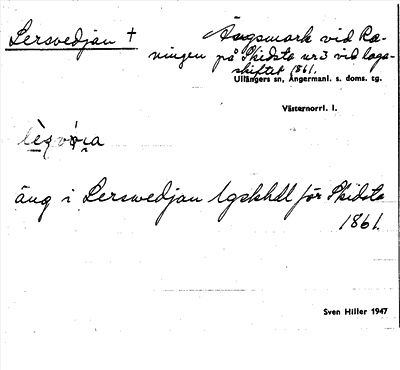 Lersvedjan †
Ängsmark vid Ra-
vningen på Skidsta nr 3 vid laga-
skiftet 1861.
Ullångers sn, Ångermanl. s. doms. tg.
Västernorrl. l.
äng i Lersvedjan lgskhdl för Skidsta
1861.
Sven Hiller 1947